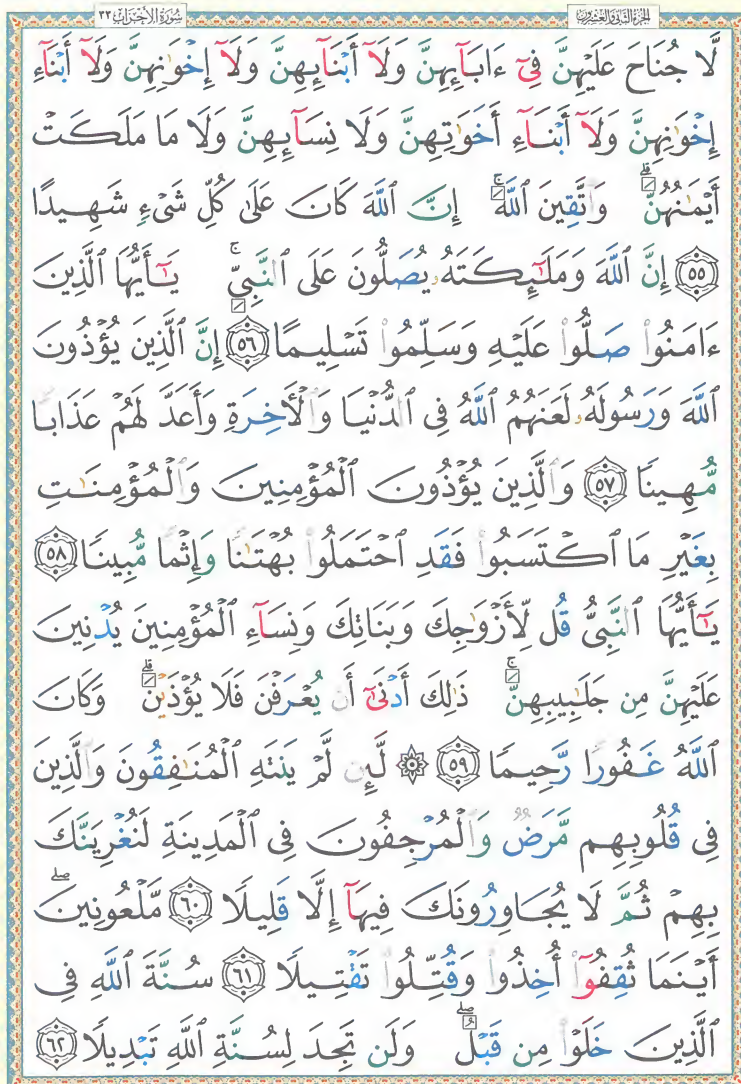 الجزء الثاني والعشرون
سورة الأحزاب ٣٣
لَّا جُنَاحَ عَلَيْهِنَّ فِىٓ ءَابَآئِهِنَّ وَلَآ أَبْنَآئِهِنَّ وَلَآ إِخْوَٰنِهِنَّ وَلَآ أَبْنَآءِ
إِخْوَٰنِهِنَّ وَلَآ أَبْنَآءِ أَخَوَٰتِهِنَّ وَلَا نِسَآئِهِنَّ وَلَا مَا مَلَكَتْ
أَيْمَٰنُهُنَّ ۗ وَٱتَّقِينَ ٱللَّهَ ۚ إِنَّ ٱللَّهَ كَانَ عَلَىٰ كُلِّ شَىْءٍ شَهِيدًا
٥٥ إِنَّ ٱللَّهَ وَمَلَٰٓئِكَتَهُۥ يُصَلُّونَ عَلَى ٱلنَّبِىِّ ۚ يَٰٓأَيُّهَا ٱلَّذِينَ
ءَامَنُوا۟ صَلُّوا۟ عَلَيْهِ وَسَلِّمُوا۟ تَسْلِيمًا ٥٦ إِنَّ ٱلَّذِينَ يُؤْذُونَ
ٱللَّهَ وَرَسُولَهُۥ لَعَنَهُمُ ٱللَّهُ فِى ٱلدُّنْيَا وَٱلْأَخِرَةِ وَأَعَدَّ لَهُمْ عَذَابًا
مُّهِينًا ٥٧ وَٱلَّذِينَ يُؤْذُونَ ٱلْمُؤْمِنِينَ وَٱلْمُؤْمِنَٰتِ
بِغَيْرِ مَا ٱكْتَسَبُوا۟ فَقَدِ ٱحْتَمَلُوا۟ بُهْتَٰنًا وَإِثْمًا مُّبِينًا ٥٨
يَٰٓأَيُّهَا ٱلنَّبِىُّ قُل لِّأَزْوَٰجِكَ وَبَنَاتِكَ وَنِسَآءِ ٱلْمُؤْمِنِينَ يُدْنِينَ
عَلَيْهِنَّ مِن جَلَٰبِيبِهِنَّ ۚ ذَٰلِكَ أَدْنَىٰٓ أَن يُعْرَفْنَ فَلَا يُؤْذَيْنَ ۗ وَكَانَ
ٱللَّهُ غَفُورًا رَّحِيمًا ٥٩ ۞ لَّئِن لَّمْ يَنتَهِ ٱلْمُنَٰفِقُونَ وَٱلَّذِينَ
فِى قُلُوبِهِم مَّرَضٌ وَٱلْمُرْجِفُونَ فِى ٱلْمَدِينَةِ لَنُغْرِيَنَّكَ
بِهِمْ ثُمَّ لَا يُجَاوِرُونَكَ فِيهَآ إِلَّا قَلِيلًا ٦٠ مَّلْعُونِينَ ۖ
أَيْنَمَا ثُقِفُوٓا۟ أُخِذُوا۟ وَقُتِّلُوا۟ تَقْتِيلًا ٦١ سُنَّةَ ٱللَّهِ فِى
ٱلَّذِينَ خَلَوْا۟ مِن قَبْلُ ۖ وَلَن تَجِدَ لِسُنَّةِ ٱللَّهِ تَبْدِيلًا ٦٢